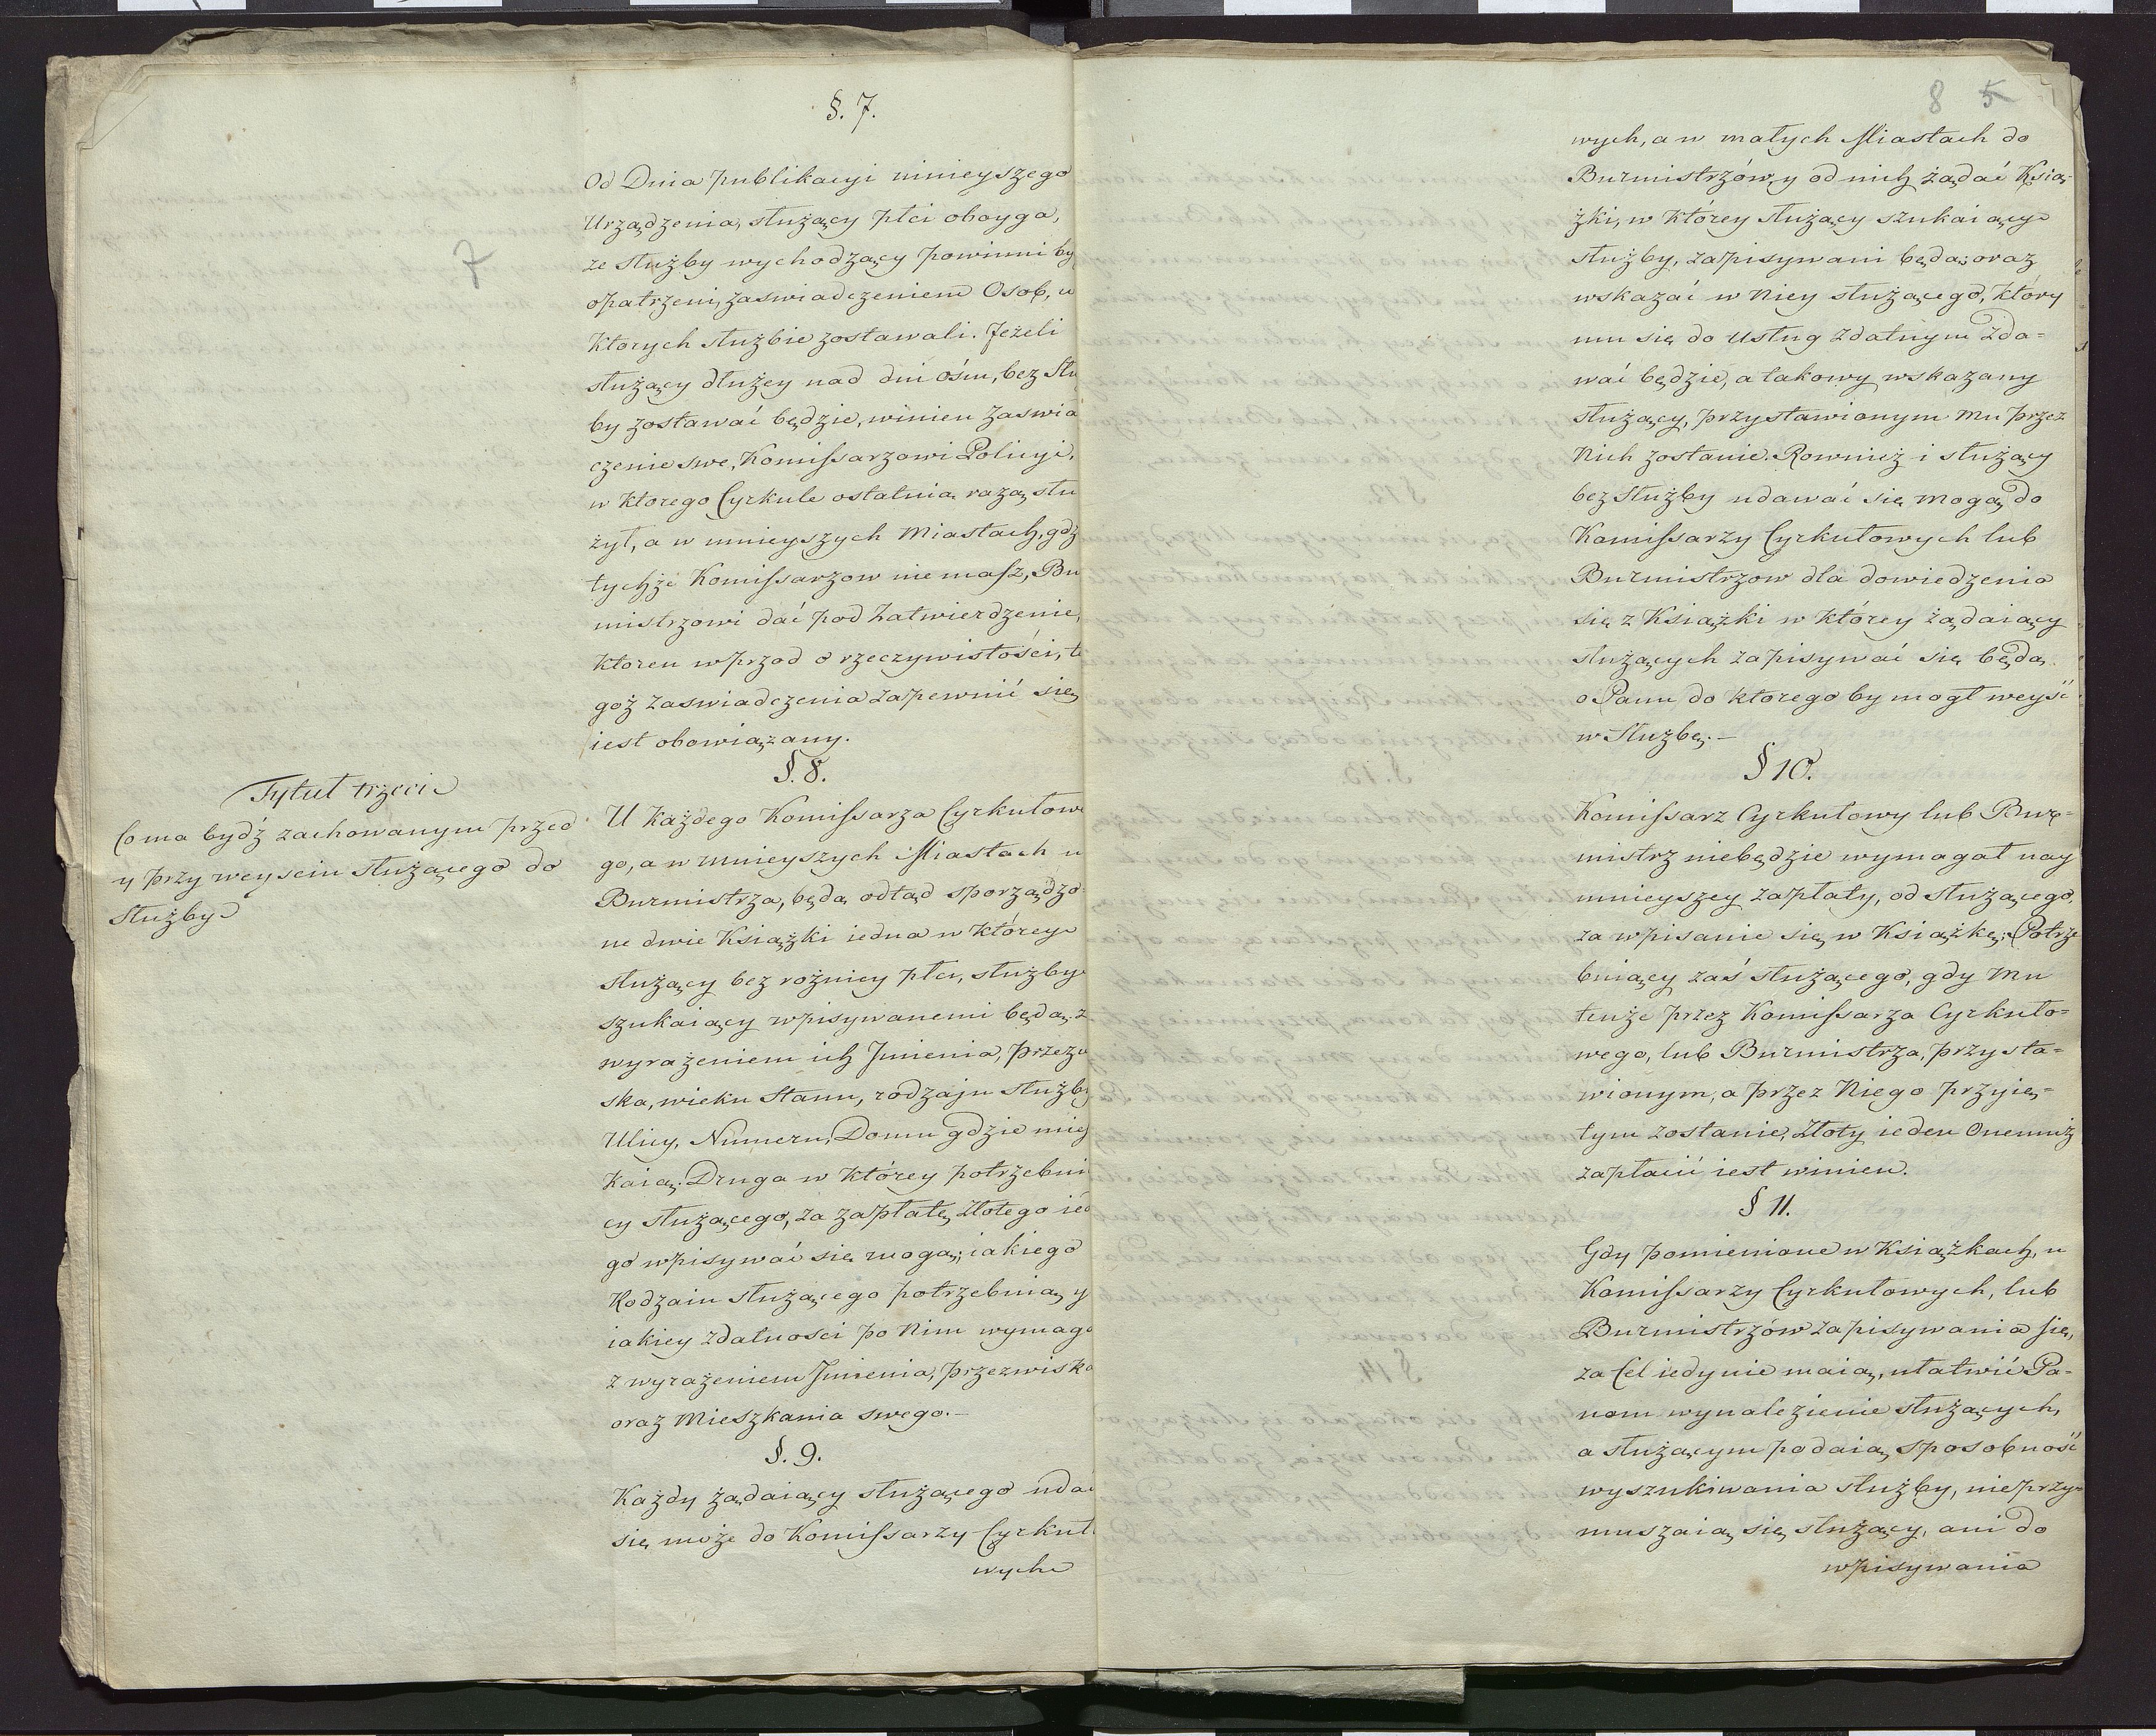 7
§. 7.
Od Dnia publikacyi ninieyszego
Urządzenia, służący płci oboyga,
ze służby wychodzący powinni by
opatrzeni, zaswiadczeniem Osob, w
ktorych służbie zostawali. Jeżeli
służący dłużey nad dni ośm, bez Słu
by zostawać będzie, winien zaswia
czenie swe, Komissarzowi Policyi,
w ktorego Cyrkule ostatnią razą słu
żył, a w mnieyszych Miastach, gdz
tychże Komissarzow niemasz, Bu
mistrzowi dać pod Zatwierdzenie,
ktoren wprzod o rzeczywistości, te
goż zaswiadczenia zapewnić się
iest obowiązany.
§. 8.
Tytuł trzeci
Co ma bydź zachowanym przed
y przy weysciu służącego do
służby
U każdego Komissarza Cyrkułowe
go, a w mnieyszych Miastach u
Burmistrza, będą odtąd sporządzo
ne dwie Książki iedna w którey
służący bez rożnicy płci, służby
szukaiący wpisywanemi będą, z
wyrażeniem ich Jmienia, przezw
ska, wieku Stanu, rodzaju służby
Ulicy, Numeru, Domu gdzie miesz
kaią; Druga w którey potrzebui
cy służącego, za zapłatę Złotego ied
go wpisywać się mogą; iakiego
Rodzaiu służącego potrzebuią y
iakiey zdatności po Nim wymaga
z wyrażeniem Jmienia, przezwiska
oraz Mieszkania swego.—
§. 9.
Każdy żądaiący służącego udać
się może do Komissarzy Cyrkuł
wych
8 5
wych, a w małych Miastach do
Burmistrzów, y od nich żądać Ksią-
żki, w którey służący szukaiący
służby, zapisywani będą; oraz
wskazać w Niey służącego, ktory
mu się do usług zdatnym zda=
wać będzie, a takowy wskazany
służący, przystawionym Mu przez
Nich zostanie. Rownież i służący
bez służby udawać się mogą do
Komissarzy Cyrkułowych lub
Burmistrzow dla dowiedzenia
się z Książki w którey żądaiący
służących zapisywać się będą.
o Panu do ktorego by mogł weyść
w Służbę.—
§ 10.
Komissarz Cyrkułowy lub Bur=
mistrz niebędzie wymagał nay
mnieyszey zapłaty, od służącego,
za wpisanie się w Książkę; Potrze
buiący zaś służącego, gdy Mu
tenże przez Komissarza Cyrkuło=
wego, lub Burmistrza, przysta=
wionym, a przez Niego przyię=
tym zostanie, Złoty ieden Onemuż
zapłacić iest winien.
§ 11.
Gdy pomienione w Książkach, u
Komissarzy Cyrkułowych, lub
Burmistrzów zapisywania się,
za Cel iedynie maią, ułatwić Pa=
nom wynalezienie służących,
a służącym podaią sposobność
wyszukiwania służby, nieprzy=
muszaią się służący, ani do
wpisywania